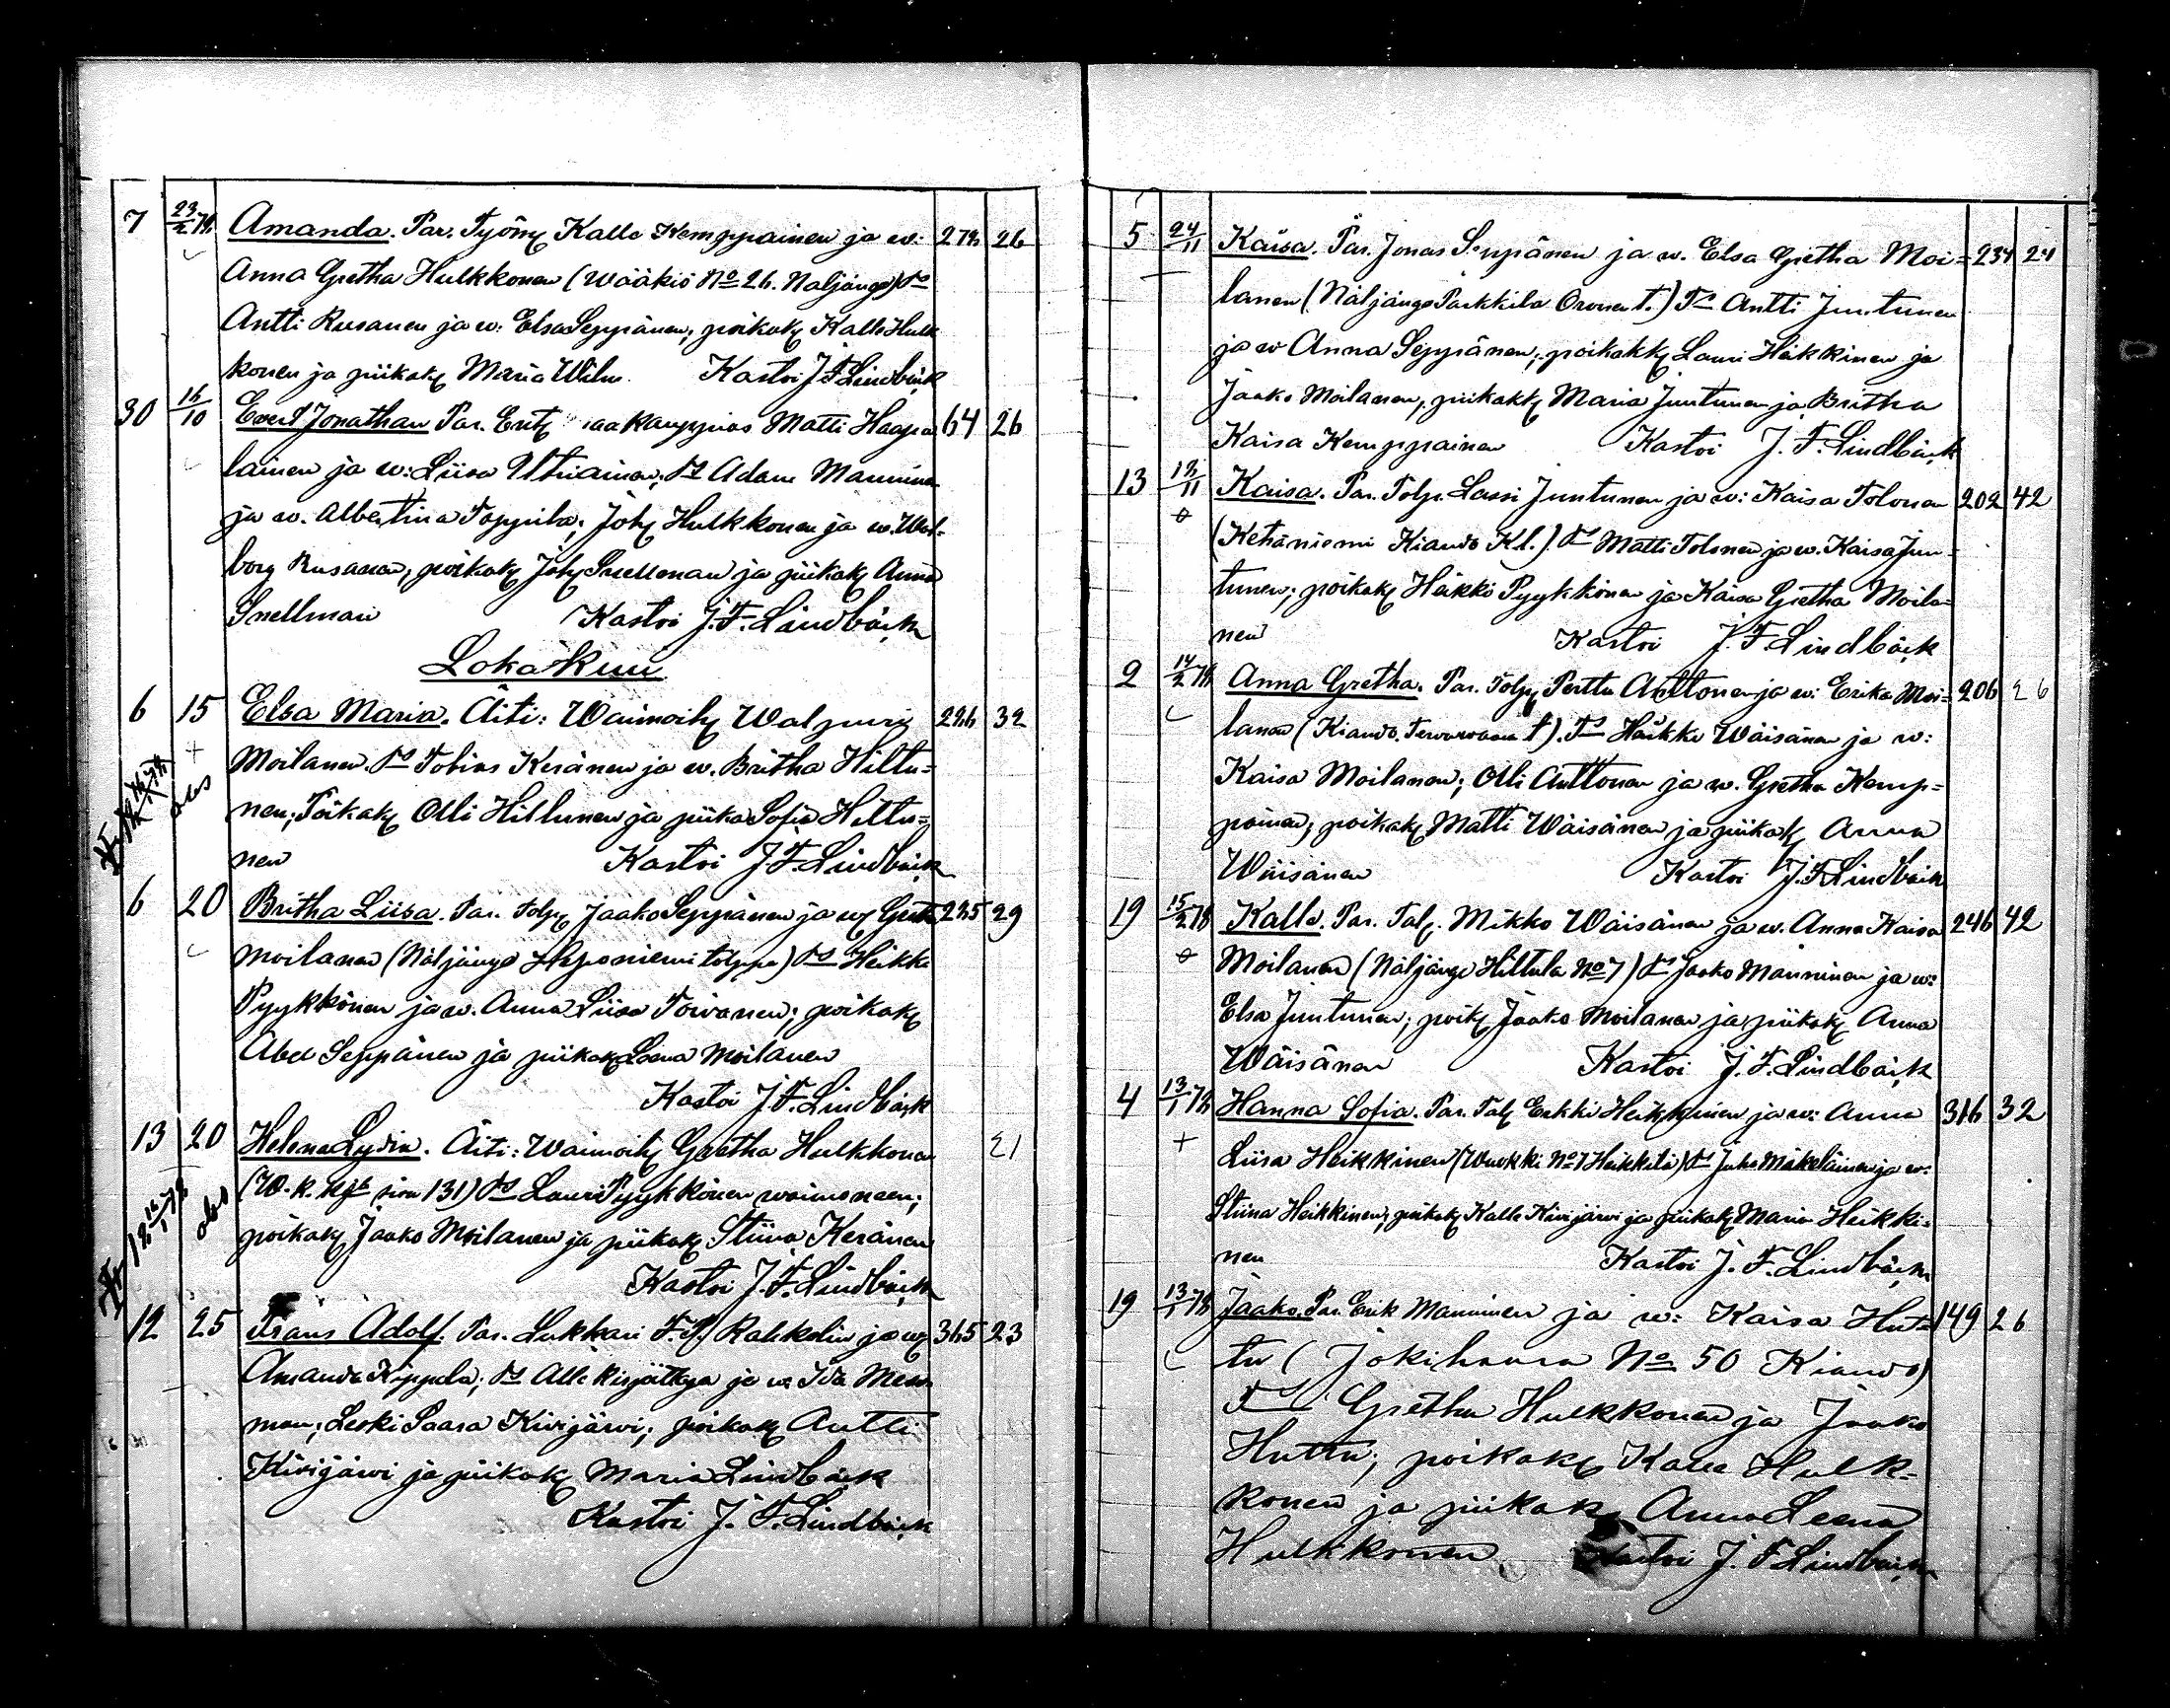 7 23/2 78 Amanda. Par. Työm. Kalle Kemppainen ja w: 278 26
Anna Gretha Hulkkonen (Wääkiö No 26. Näljängö) Ts
Antti Rusanen ja w: Elsa Seppänen; poikak. Kalle Hulk
konen ja piikak. Maria Kastoi J. F. Lindbäck
30 16/10 Evert Jonathan Par. Matti Haapa 64 26
lainen ja w: Liisa Uttriainen; Ts Adam Manninen
ja w. Albertina Toppila; Joh. Hulkkonen ja w. Wal-
borg Rusanen; poikak. Joh. Snellman ja piikak. Anna
Snellman Kastoi J. F. Lindbäck
Lokakuu
6 15 Elsa Maria. Äiti: Waimoih. Walpuri 226 32
+ Moilanen. Ts Tobias Keränen ja w. Britha Hiltu=
nen; Poikak. Olli Hiltunen ja piika Sofia Hiltu=
nen Kastoi J. F. Lindbäck
6 20 Britha Liisa. Par. Tolp. Jaako Seppänen ja w. Greta 235 29
Moilanen (Näljängö Heponiemi tolppa) Ts Heikki
Pyykkönen ja w. Anna Liisa Toivanen; poikak.
Abel Seppänen ja piikak. Leena Moilanen
Kastoi J. F. Lindbäck
13 20 Helena Lydia. Äiti: Waimoih. Gretha Hulkkonen 21
(W. k. sivu 131) Ts Lauri Pyykkönen waimoneen;
obs poikak. Jaako Moilanen ja piikak. Stiina Keränen
Kastoi J. F. Lindbäck
12 25 Frans Adolf. Par. Lukkari F. F. Rahkolin ja w. 365 23
Amanda Kippola; Ts Alle kirjoittaja ja w. Ida
man; Leski Saara Kivijärvi; poikak. Antti
Kivijärvi ja piikak. Maria Lindbäck
Kastoi J. F. Lindbäck
5 24/11 Kaisa. Par. Jonas Seppänen ja w. Elsa Gretha Moi= 234 21
lanen (Näljängö Parkkila t.) Ts Antti Juntunen
ja w Anna Seppänen; poikakk. Lauri Heikkinen ja
Jaako Moilanen, piikakk. Maria Juntunen ja Britha
Kaisa Kemppainen Kastoi J. F. Lindbäck
13 18/11 Kaisa. Par. Tolp. Lassi Juntunen ja w: Kaisa Tolonen 202 42
(Kehäniemi Kianto Kl.) Ts Matti Tolonen ja w. Kaisa Jun-
tunen; poikak. Heikki Pyykkönen ja Kaisa Gretha Moila-
nen Kastoi J. F. Lindbäck
2 14/2 78 Anna Gretha. Par. Tolp. Perttu Anttonen ja w: Erika Moi= 206 26
lanen (Kianto. t). Ts Heikki Wäisänen ja w:
Kaisa Moilanen; Olli Anttonen ja w. Gretha Kemp=
painen; poikak. Matti Wäisänen ja piikak. Anna
Wäisänen Kastoi J. F. Lindbäck
19 15/2 78 Kalle. Par. Tal. Mikko Wäisänen ja w. Anna Kaisa 246 42
Moilanen (Näljängö Hiltula No 7) Ts Jaako Manninen ja w:
Elsa Juntunen; poik. Jaako Moilanen ja piikak. Anna
Wäisänen Kastoi J. F. Lindbäck
4 13/1 78 Hanna Sofia. Par. Tal. Erkki Heikkinen ja w: Anna 316 32
+ Liisa Heikkinen (Wuokki No 7 Heikkilä) Ts Juho Mäkeläinen ja w:
Stiina Heikkinen; poikak. Kalle Kivijärvi ja piikak. Maria Heikki-
nen Kastoi J. F. Lindbäck
19 13/1 78 Jaako. Par. Erik Manninen ja w: Kaisa Hut= 149 26
tu (Jokihaara No 50 Kianto)
Ts Gretha Hulkkonen ja Jaako
Huttu; poikak. Kalle Hulk-
konen ja piikak. Anna Leena
Hulkkonen Kastoi J. F. Lindbäck